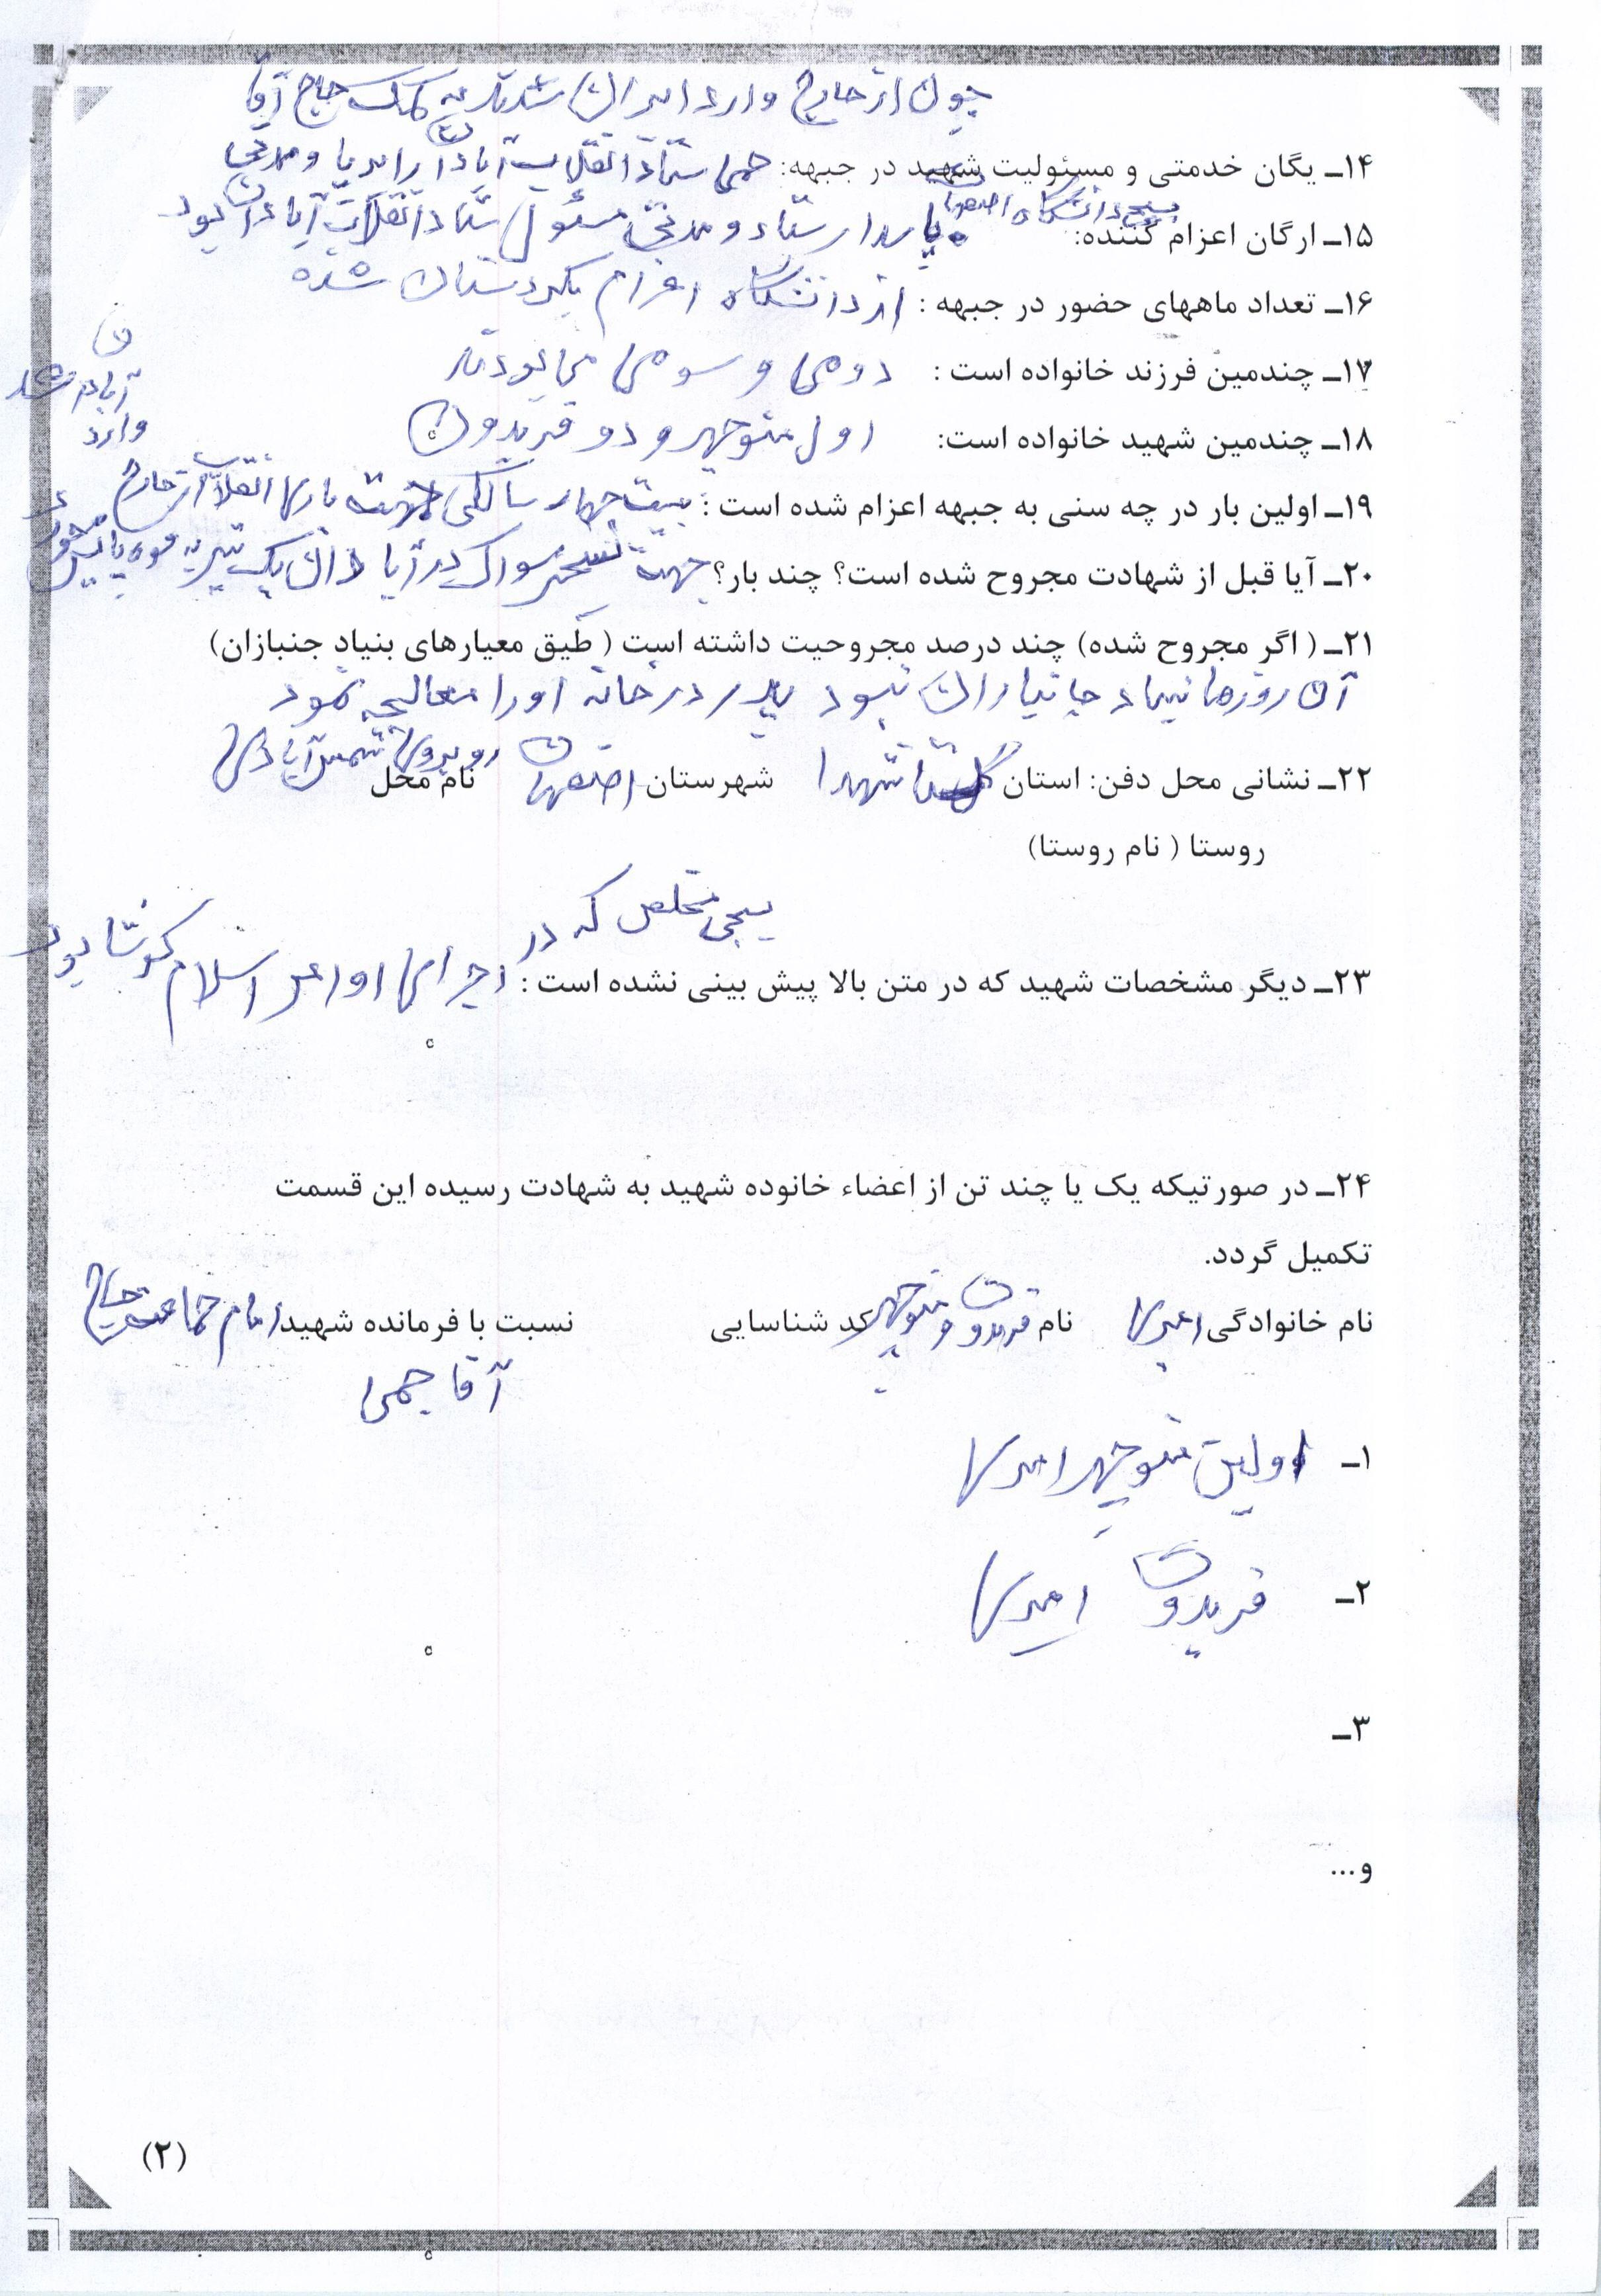 چون از خارج وارد ایران شدند به کمک حاج آقا
۱۴ـ یگان خدمتی و مسئولیت شهید در جبهه: جمی ستاد انقلاب آبادان را برپا و مدتی
بسیج دانشگاه اصفهان
۱۵ـ ارگان اعزام کننده: پاسدار ستاد و مدتی مسئول ستاد انقلاب آبادان بود
۱۶ـ تعداد ماههای حضور در جبهه : از دانشگاه اعزام بکردستان شده
۱۷ـ چندمین فرزند خانواده است : دومی و سومی می بودند
۱۸ـ چندمین شهید خانواده است: اول منوچهر و دو فریدون
۱۹ـ اولین بار در چه سنی به جبهه اعزام شده است : بیست چهار سالگی جهت یاری انقلاب از خارج
وارد
آبادان شد
۲۰ـ آیا قبل از شهادت مجروح شده است؟ چند بار؟ جهت تسخیر ساواک در آبادان یک تیر به
۲۱ـ ( اگر مجروح شده) چند درصد مجروحیت داشته است ( طیق معیارهای بنیاد جنبازان)
آن روزها بنیاد جانبازان نبود پدر در خانه او را معالجه نمود
۲۲ـ نشانی محل دفن: استان گلستان شهدا شهرستان اصفهان نام محل روبروی شمس آبادی
روستا ( نام روستا)
بسیجی مخلص که در
۲۳ـ دیگر مشخصات شهید که در متن بالا پیش بینی نشده است : اجرای اوامر اسلام کوشا بود
۲۴ـ در صورتیکه یک یا چند تن از اعضاء خانوده شهید به شهادت رسیده این قسمت
تکمیل گردد.
نام خانوادگی امیری نام فریدون و منوچهر کد شناسایی نسبت با فرمانده شهید امام جماعت حاج
آقا جمی
۱ـ اولین منوچهر امیری
۲ـ فریدون امیری
۳ـ
و...
(۲)